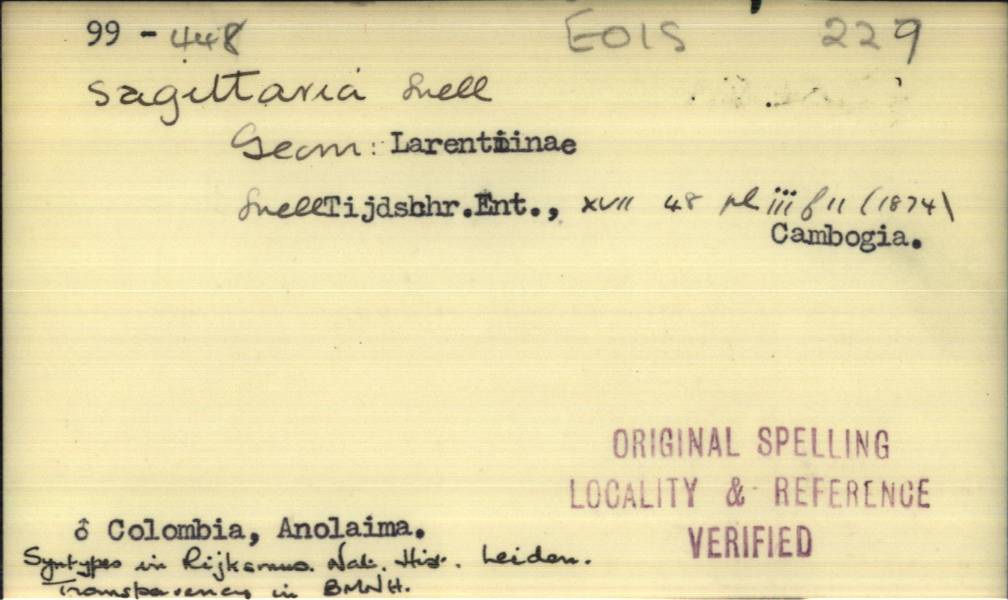 99 - 448 EOIS 229
sagittaria Snell
Geom: Larentiinae
Snell Tijdschr.Ent., xvii 48 pl iii f 11 (1874)
Cambogia.
ORIGINAL SPELLING
LOCALITY & REFERENCE
VERIFIED
♂ Colombia, Anolaima.
Syntypes in Rijksmus. Nat. Hist. Leiden.
Transparency in BMNH.